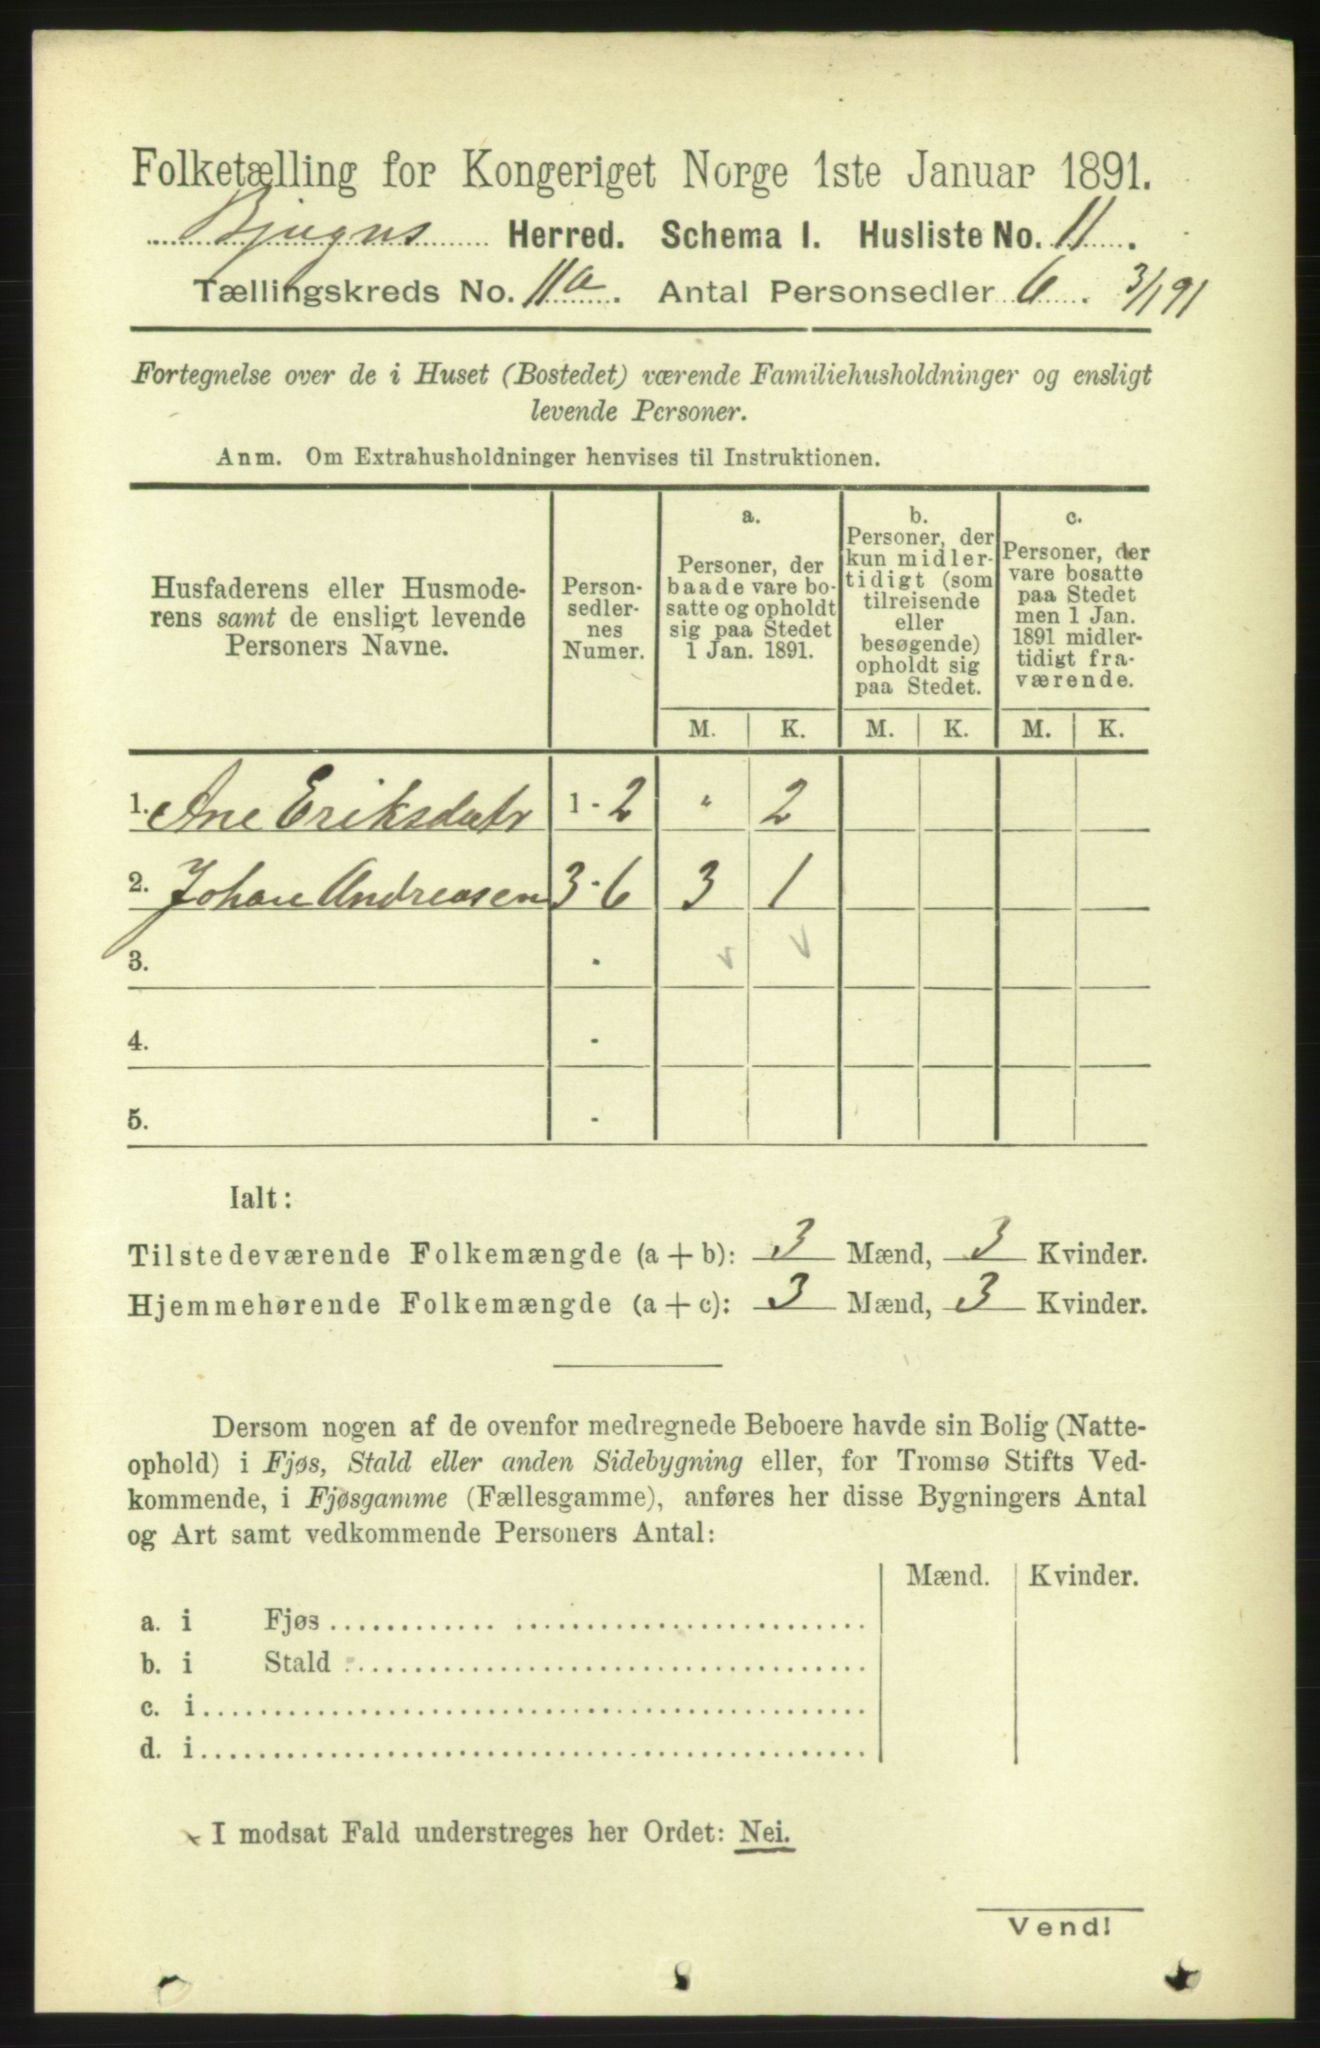 Folketælling for Kongeriget Norge 1ste Januar 1891.
Bjugns Herred. Schema I. Husliste No. 11.
Tællingskreds No. 11a. Antal Personsedler 6. 3/1 91
Fortegnelse over de i Huset (Bostedet) værende Familiehusholdninger og ensligt
levende Personer.
Anm. Om Extrahusholdninger henvises til Instruktionen.
Husfaderens eller Husmode-
rens samt de ensligt levende
Personers Navne.
Person-
sedler-
nes
Numer.
a.
Personer, der
baade vare bo-
satte og opholdt
sig paa Stedet
1 Jan. 1891.
b.
Personer, der
kun midler-
tidigt (som
tilreisende
eller
besøgende)
opholdt sig
paa Stedet.
c.
Personer, der
vare bosatte
paa Stedet
men 1 Jan.
1891 midler-
tidigt fra-
værende.
M. K. M. K. M. K.
1. Ane Eriksdatr 1 - 2 " 2
2. Johan Andreasen 3 - 6 3 1
3. -
4. -
5. -
Ialt:
Tilstedeværende Folkemængde (a + b): 3 Mænd, 3 Kvinder.
Hjemmehørende Folkemængde (a + c): 3 Mænd, 3 Kvinder.
Dersom nogen af de ovenfor medregnede Beboere havde sin Bolig (Natte-
ophold) i Fjøs, Stald eller anden Sidebygning eller, for Tromsø Stifts Ved-
kommende, i Fjøsgamme (Fællesgamme), anføres her disse Bygningers Antal
og Art samt vedkommende Personers Antal:
Mænd. Kvinder.
a. i Fjøs
b. i Stald
c. i
d. i
I modsat Fald understreges her Ordet: Nei.
Vend!